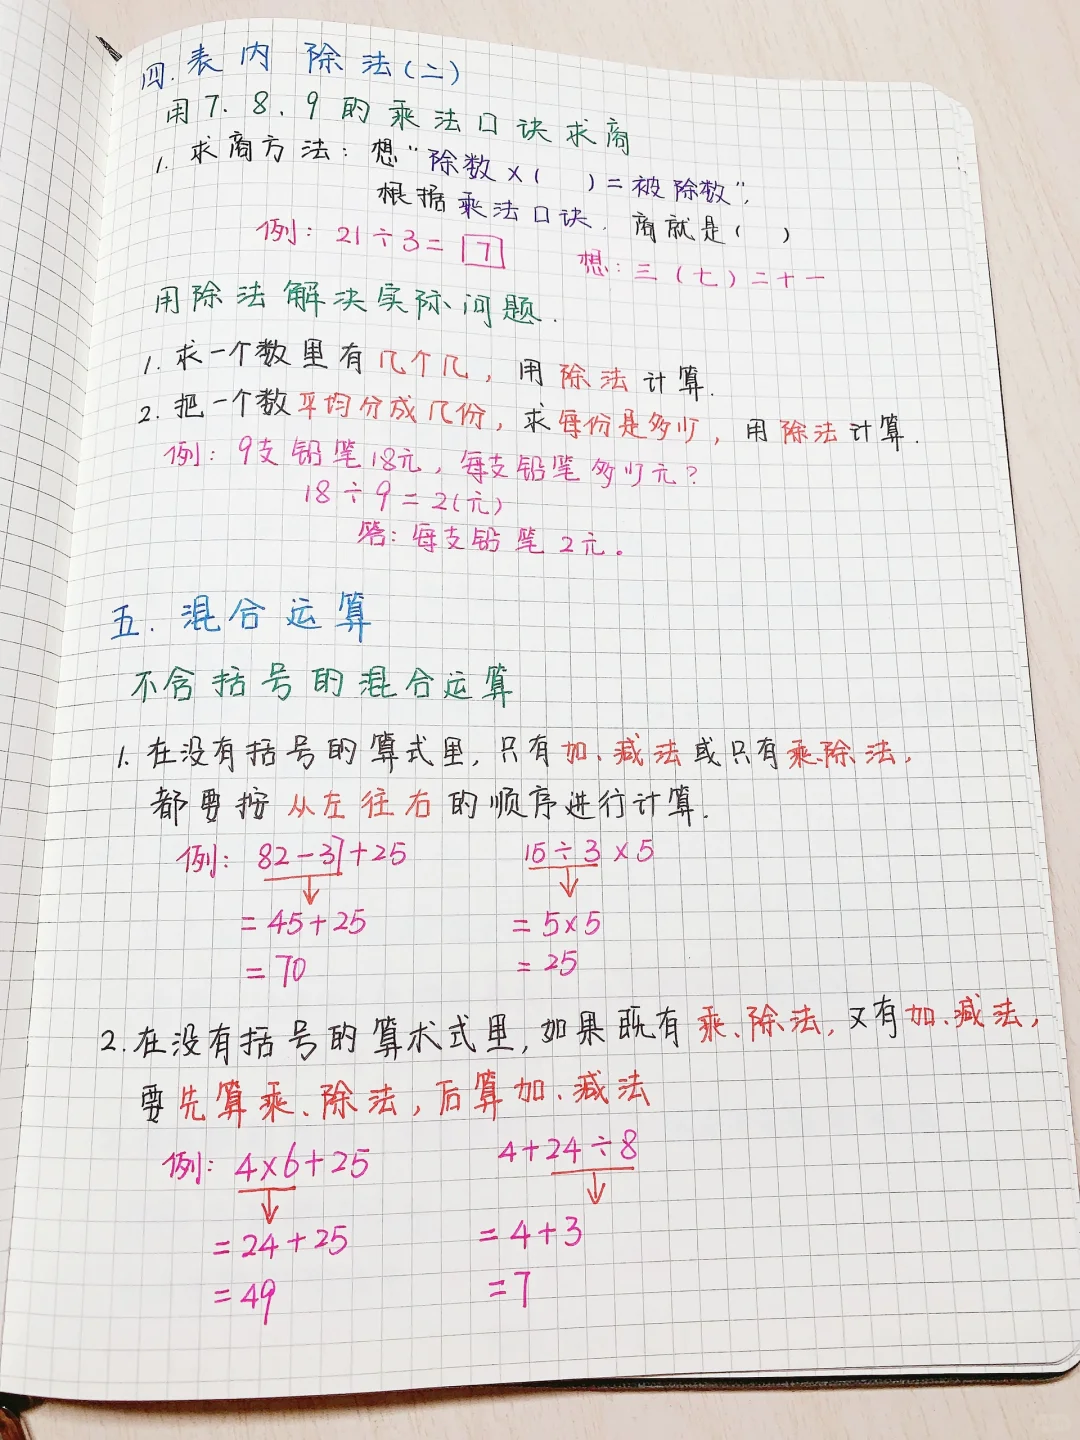 四. 表内 除法(二)
用7. 8. 9的乘法口诀求商
1. 求商方法: 想“除数×( )=被除数”,
根据乘法口诀. 商就是( )
例: 21÷3=7 想: 三(七)二十一
用除法解决实际问题.
1. 求一个数里有几个几, 用除法计算.
2. 把一个数平均分成几份, 求每份是多少, 用除法计算.
例: 9支铅笔18元, 每支铅笔多少元?
18÷9=2(元)
答: 每支铅笔2元。
五. 混合运算
不含括号的混合运算
1. 在没有括号的算式里, 只有加、减法或只有乘、除法,
都要按从左往右的顺序进行计算.
例: 82-37+25 15÷3×5
=45+25 =5×5
=70 =25
2. 在没有括号的算术式里, 如果既有乘、除法, 又有加、减法,
要先算乘、除法, 后算加、减法
例: 4×6+25 4+24÷8
=24+25 =4+3
=49 =7